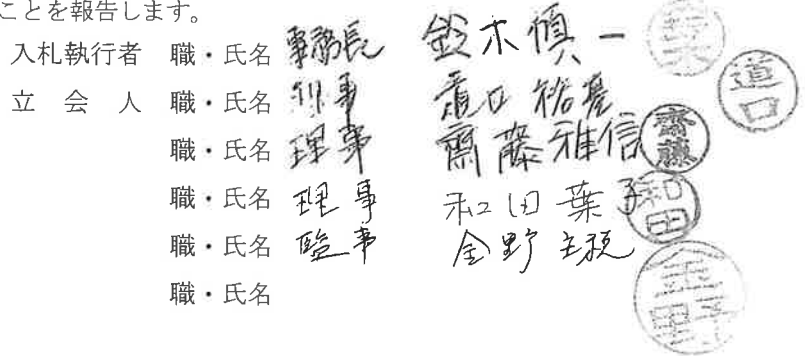 ことを報告します。
入札執行者 職・氏名 事務長 鈴木慎一 鈴木
立会人 職・氏名 理事 道口裕基 道口
職・氏名 理事 齋藤雅信 齋藤
職・氏名 理事 和田葉子 和田
職・氏名 監事 金野 金野
職・氏名